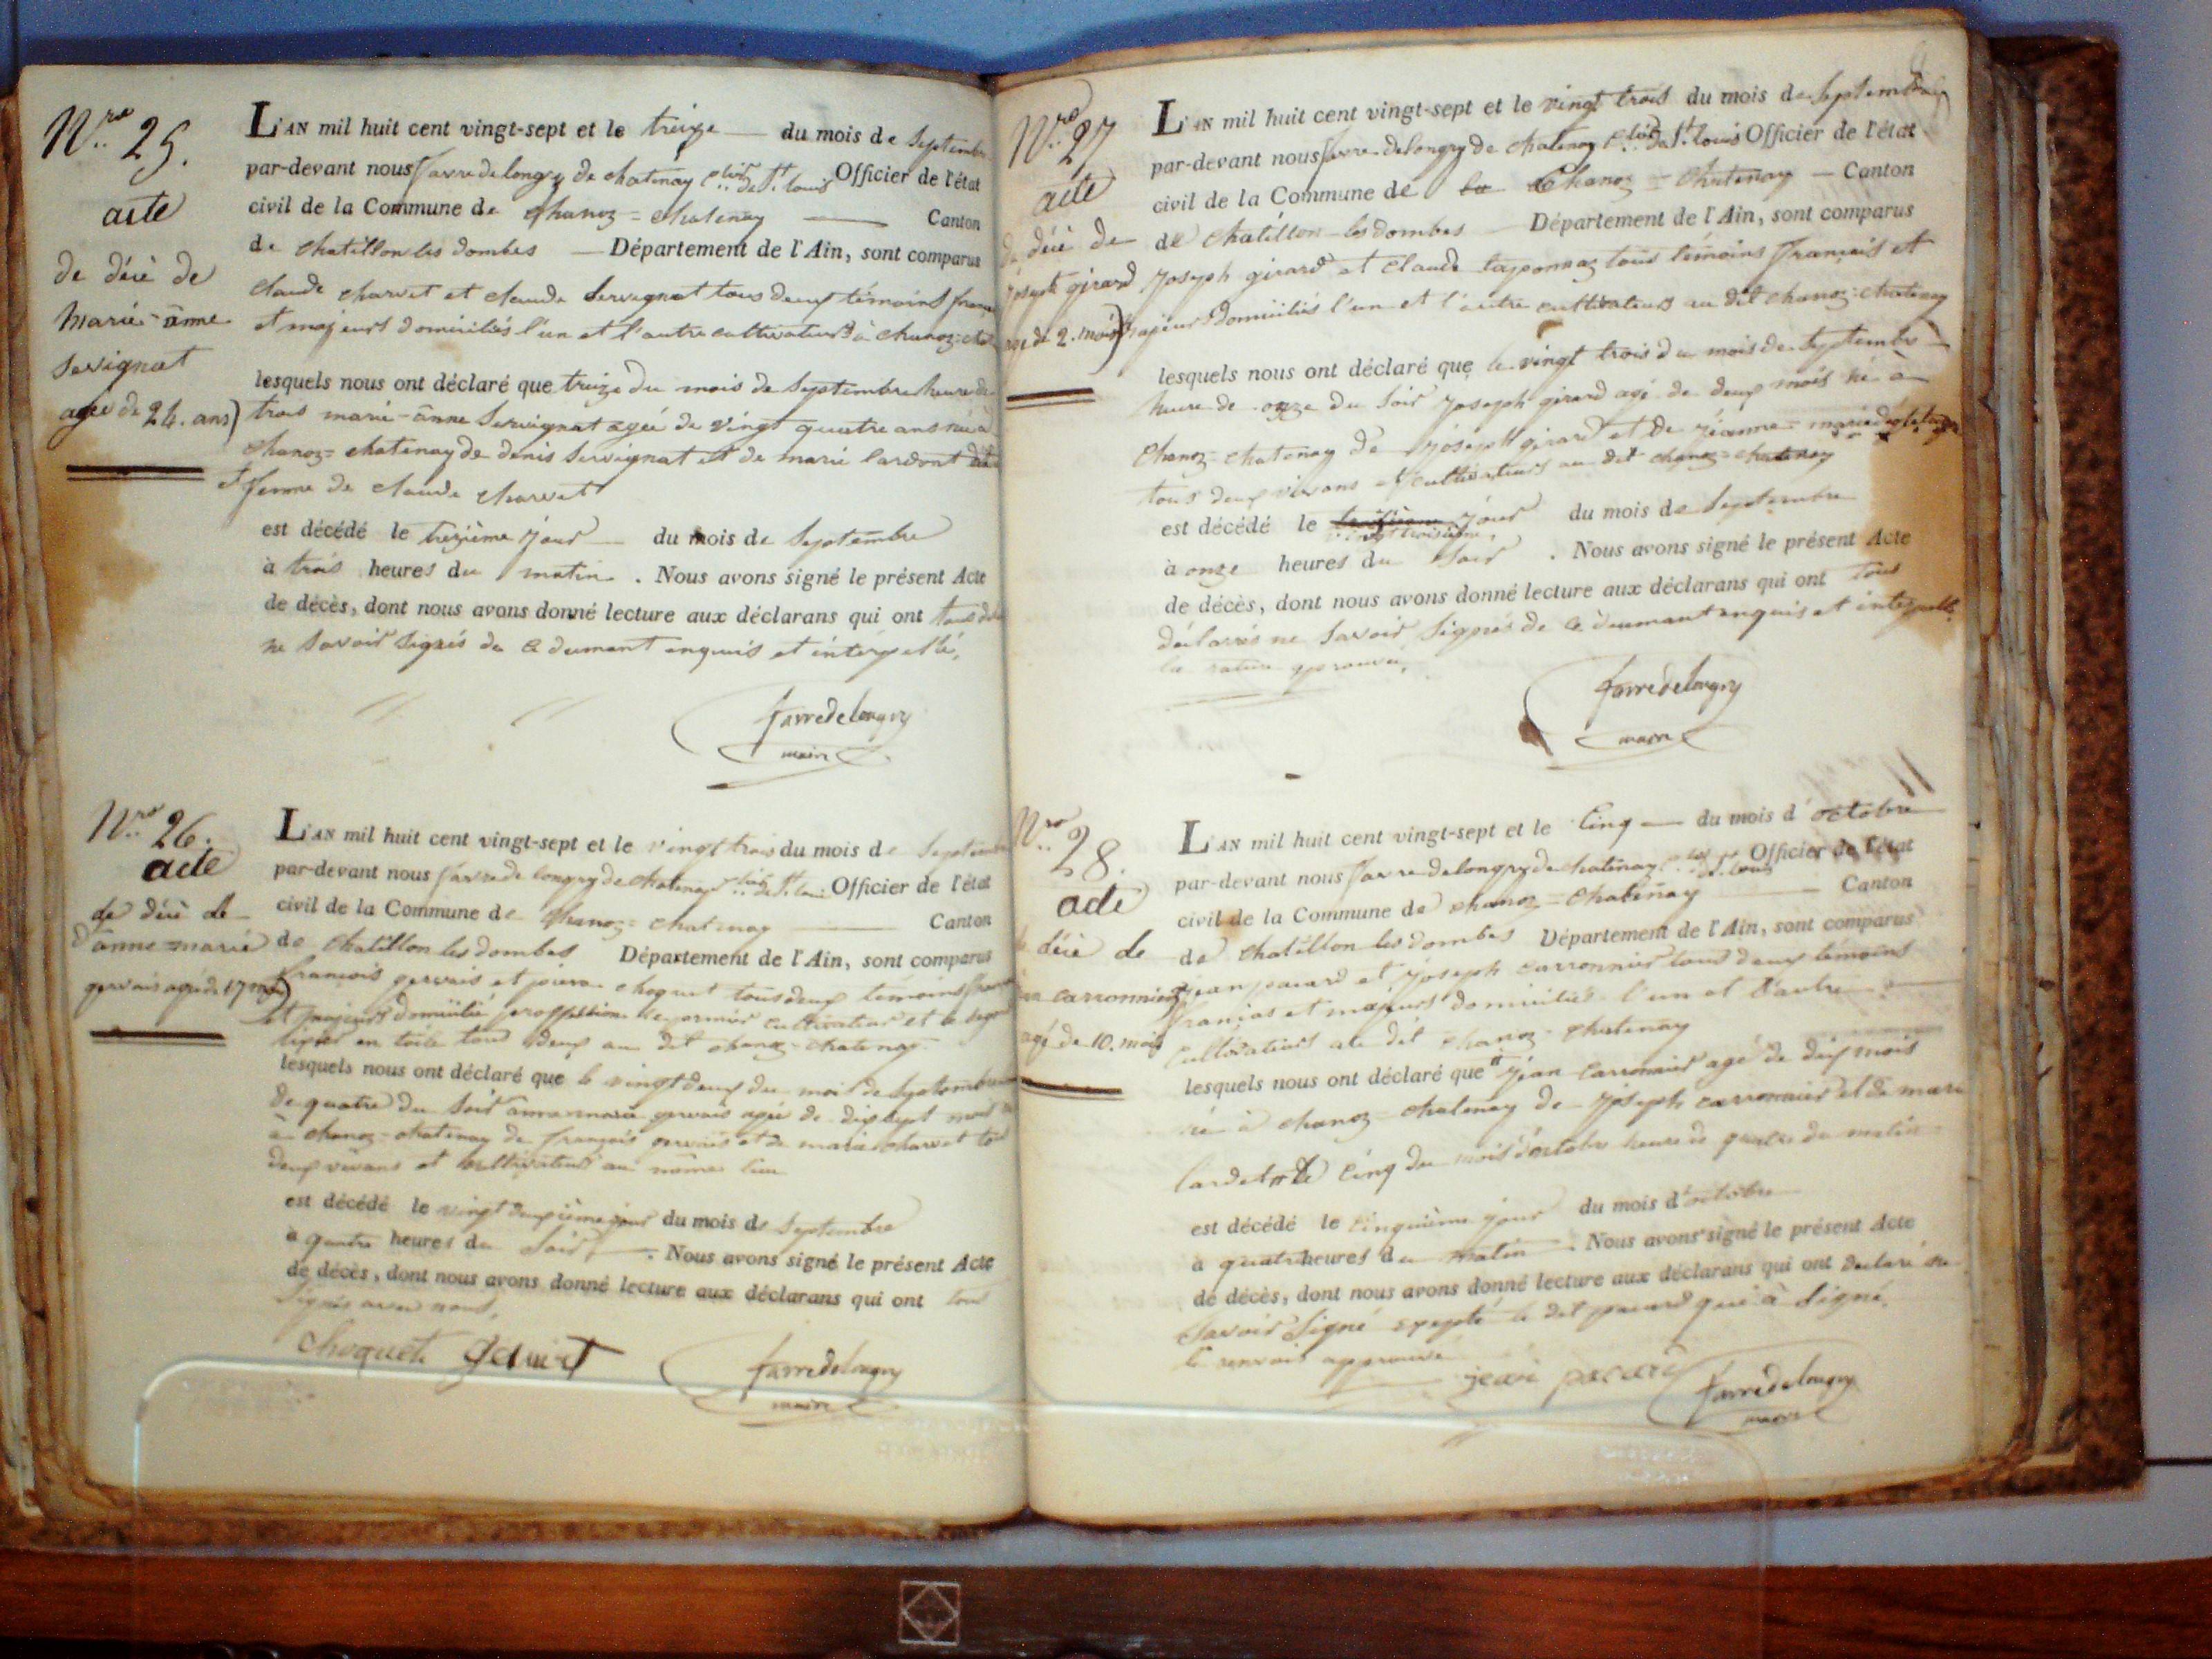 Nro 25.
acte
de décè de
Marie-anne
Servignat
agée de 24. ans)
L'AN mil huit cent vingt-sept et le treize du mois de Septembre
par-devant nous favre de longry de chatenay cher de St. louis Officier de l'état
civil de la Commune de Chanoz = chatenay Canton
de chatillon les dombes Département de l'Ain, sont comparus
claude charvet et claude Servignat tous deux témoins
et majeurs domiciliés l'un et l'autre cultivateurs à chanoz-
lesquels nous ont déclaré que treize du mois de Septembre heure de
trois marie-anne Servignat agée de vingt quatre ans née à
Chanoz = chatenay de denis Servignat et de marie lardont
et femme de claude charvet
est décédé le treizième jour du mois de Septembre
à trois heures du matin. Nous avons signé le présent Acte
de décès, dont nous avons donné lecture aux déclarans qui ont
ne savoir signés de ce dument enquis et intérpellé,
favredelongry
maire
Nro 26.
acte
de décè de
d'anne=marie
gervais agée de 17 mois)
L'AN mil huit cent vingt-sept et le vingt trois du mois de Septembre
par-devant nous favre de longry de chatenay cher de St. louis Officier de l'état
civil de la Commune de Chanoz = chatenay Canton
de chatillon les dombes Département de l'Ain, sont comparus
francois gervais et pierre choquet tous deux temoins
et majeurs domicilié proffession le premier cultivateur et le
en toile tous deux au dit chanoz-chatenay
lesquels nous ont déclaré que le vingt deux du mois de Septembre
de quatre du Soir anne marie gervais agée de dix sept mois
à chanoz-chatenay de françois gervais et de marie charvet
deux vivans et cultivateurs au même lieu
est décédé le vingt deuxième jour du mois de Septembre
à quatre heures du Soir. Nous avons signé le présent Acte
de décès, dont nous avons donné lecture aux déclarans qui ont tous
Signés avec nous,
choquet
favredelongry
maire
Nro 27
acte
de décè de
joseph girard
age de 2. mois)
L'AN mil huit cent vingt-sept et le vingt trois du mois de Septembre
par-devant nous favre de longry de chatenay cher de St. louis Officier de l'état
civil de la Commune de Chanoz = Chatenay Canton
de chatillon-les dombes Département de l'Ain, sont comparus
joseph girard et claude taponnaz tous témoins français et
majeurs domiciliés l'un et l'autre cultivateurs au dit chanoz-chatenay
lesquels nous ont déclaré que le vingt trois du mois de Septembre
heure de onze du Soir joseph girard agé de deux mois né à
Chanoz=chatenay de joseph girard et de jeanne-marie
tous deux vivans et cultivateurs au dit chanoz-chatenay
est décédé le troisième jour du mois de Septembre
vingt troisième,
à onze heures du Soir. Nous avons signé le présent Acte
de décès, dont nous avons donné lecture aux déclarans qui ont tous
déclarés ne Savoir Signés de ce dument enquis et intérpellé
la rature approuvée,
favredelongry
maire
Nro 28.
acte
de décè de
jean carronnier
agé de 10. mois
L'AN mil huit cent vingt-sept et le Cinq du mois d'octobre
par-devant nous favre de longry de chatenay cher de St. louis Officier de l'état
civil de la Commune de chanoz = Chatenay Canton
de chatillon les dombes Département de l'Ain, sont comparus
jean pacard et joseph carronnier tous deux témoins
françias et majeurs domiciliés l'un et l'autre
cultivateurs au dit chanoz-chatenay
lesquels nous ont déclaré que jean carronnier agé de dix mois
né à chanoz=chatenay de joseph carronnier et de marie
lardet le cinq du mois d'octobre heure de quatre du matin
est décédé le cinquième jour du mois d'octobre
à quatre heures du matin. Nous avons signé le présent Acte
de décès, dont nous avons donné lecture aux déclarans qui ont declaré ne
Savoir Signé excepté le dit pacard qui à Signé,
le renvoit approuvé
jean pacard
favredelongry
maire